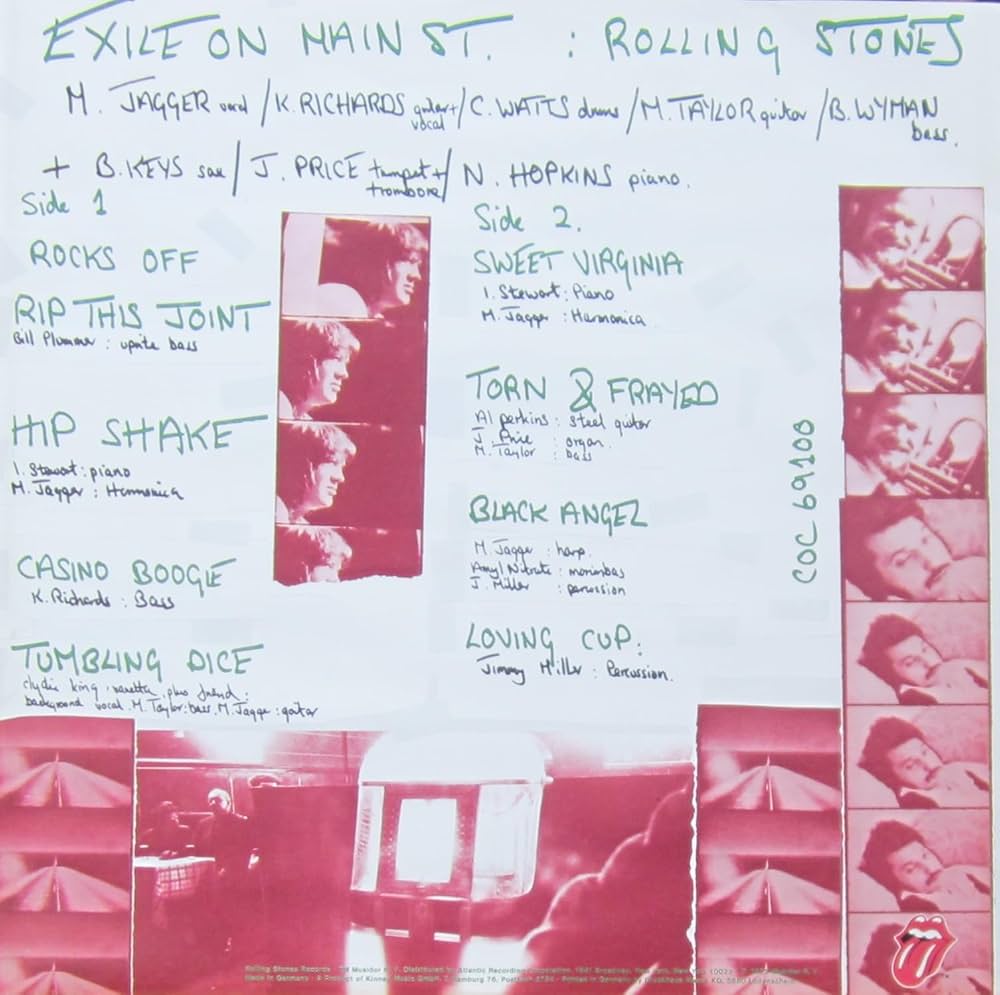 EXILE ON MAIN ST. : ROLLING STONES
M. JAGGER vocal / K. RICHARDS guitar + vocal / C. WATTS drums / M. TAYLOR guitar / B. WYMAN bass.
+ B. KEYS sax / J. PRICE trumpet + trombone / N. HOPKINS piano.
Side 1
ROCKS OFF
RIP THIS JOINT
Bill Plummer : uprite bass
HIP SHAKE
I. Stewart : piano
M. Jagger : Harmonica
CASINO BOOGIE
K. Richards : Bass
TUMBLING DICE
clydie king, vanetta, plus friend :
background vocal. M. Taylor: bass. M. Jagger : guitar
Side 2.
SWEET VIRGINIA
I. Stewart : Piano
M. Jagger : Harmonica
TORN & FRAYED
Al perkins : Steel guitar
J. Price : organ.
M. Taylor : bass
BLACK ANGEL
M. Jagger : harp.
Amyl Nitrate : marimbas
J. Miller : percussion
LOVING CUP:
Jimmy Miller : Percussion.
COC 69100
Rolling Stones Records Distributed by Atlantic Recording Corporation, 1841 Broadway, New York, New York
Made in Germany A Product of Kinney Music GmbH, 2 Hamburg 76, Printed in Germany by